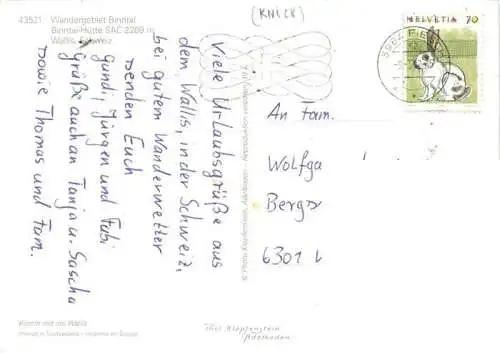 43521 Wandergebiet Binntal
Binntal-Hütte SAC 2269 m
Wallis, Schweiz
(KNICK)
HELVETIA 70
Viele Urlaubsgrüße aus
dem Wallis, in der Schweiz,
bei gutem Wanderwetter
senden Euch
gundi, Jürgen und Fabi
Grüße auch an Tanja u. Sascha
sowie Thomas und Fam.
An Fam.
Wolfga
Bergs
6301
Klopfenstein
Adelboden